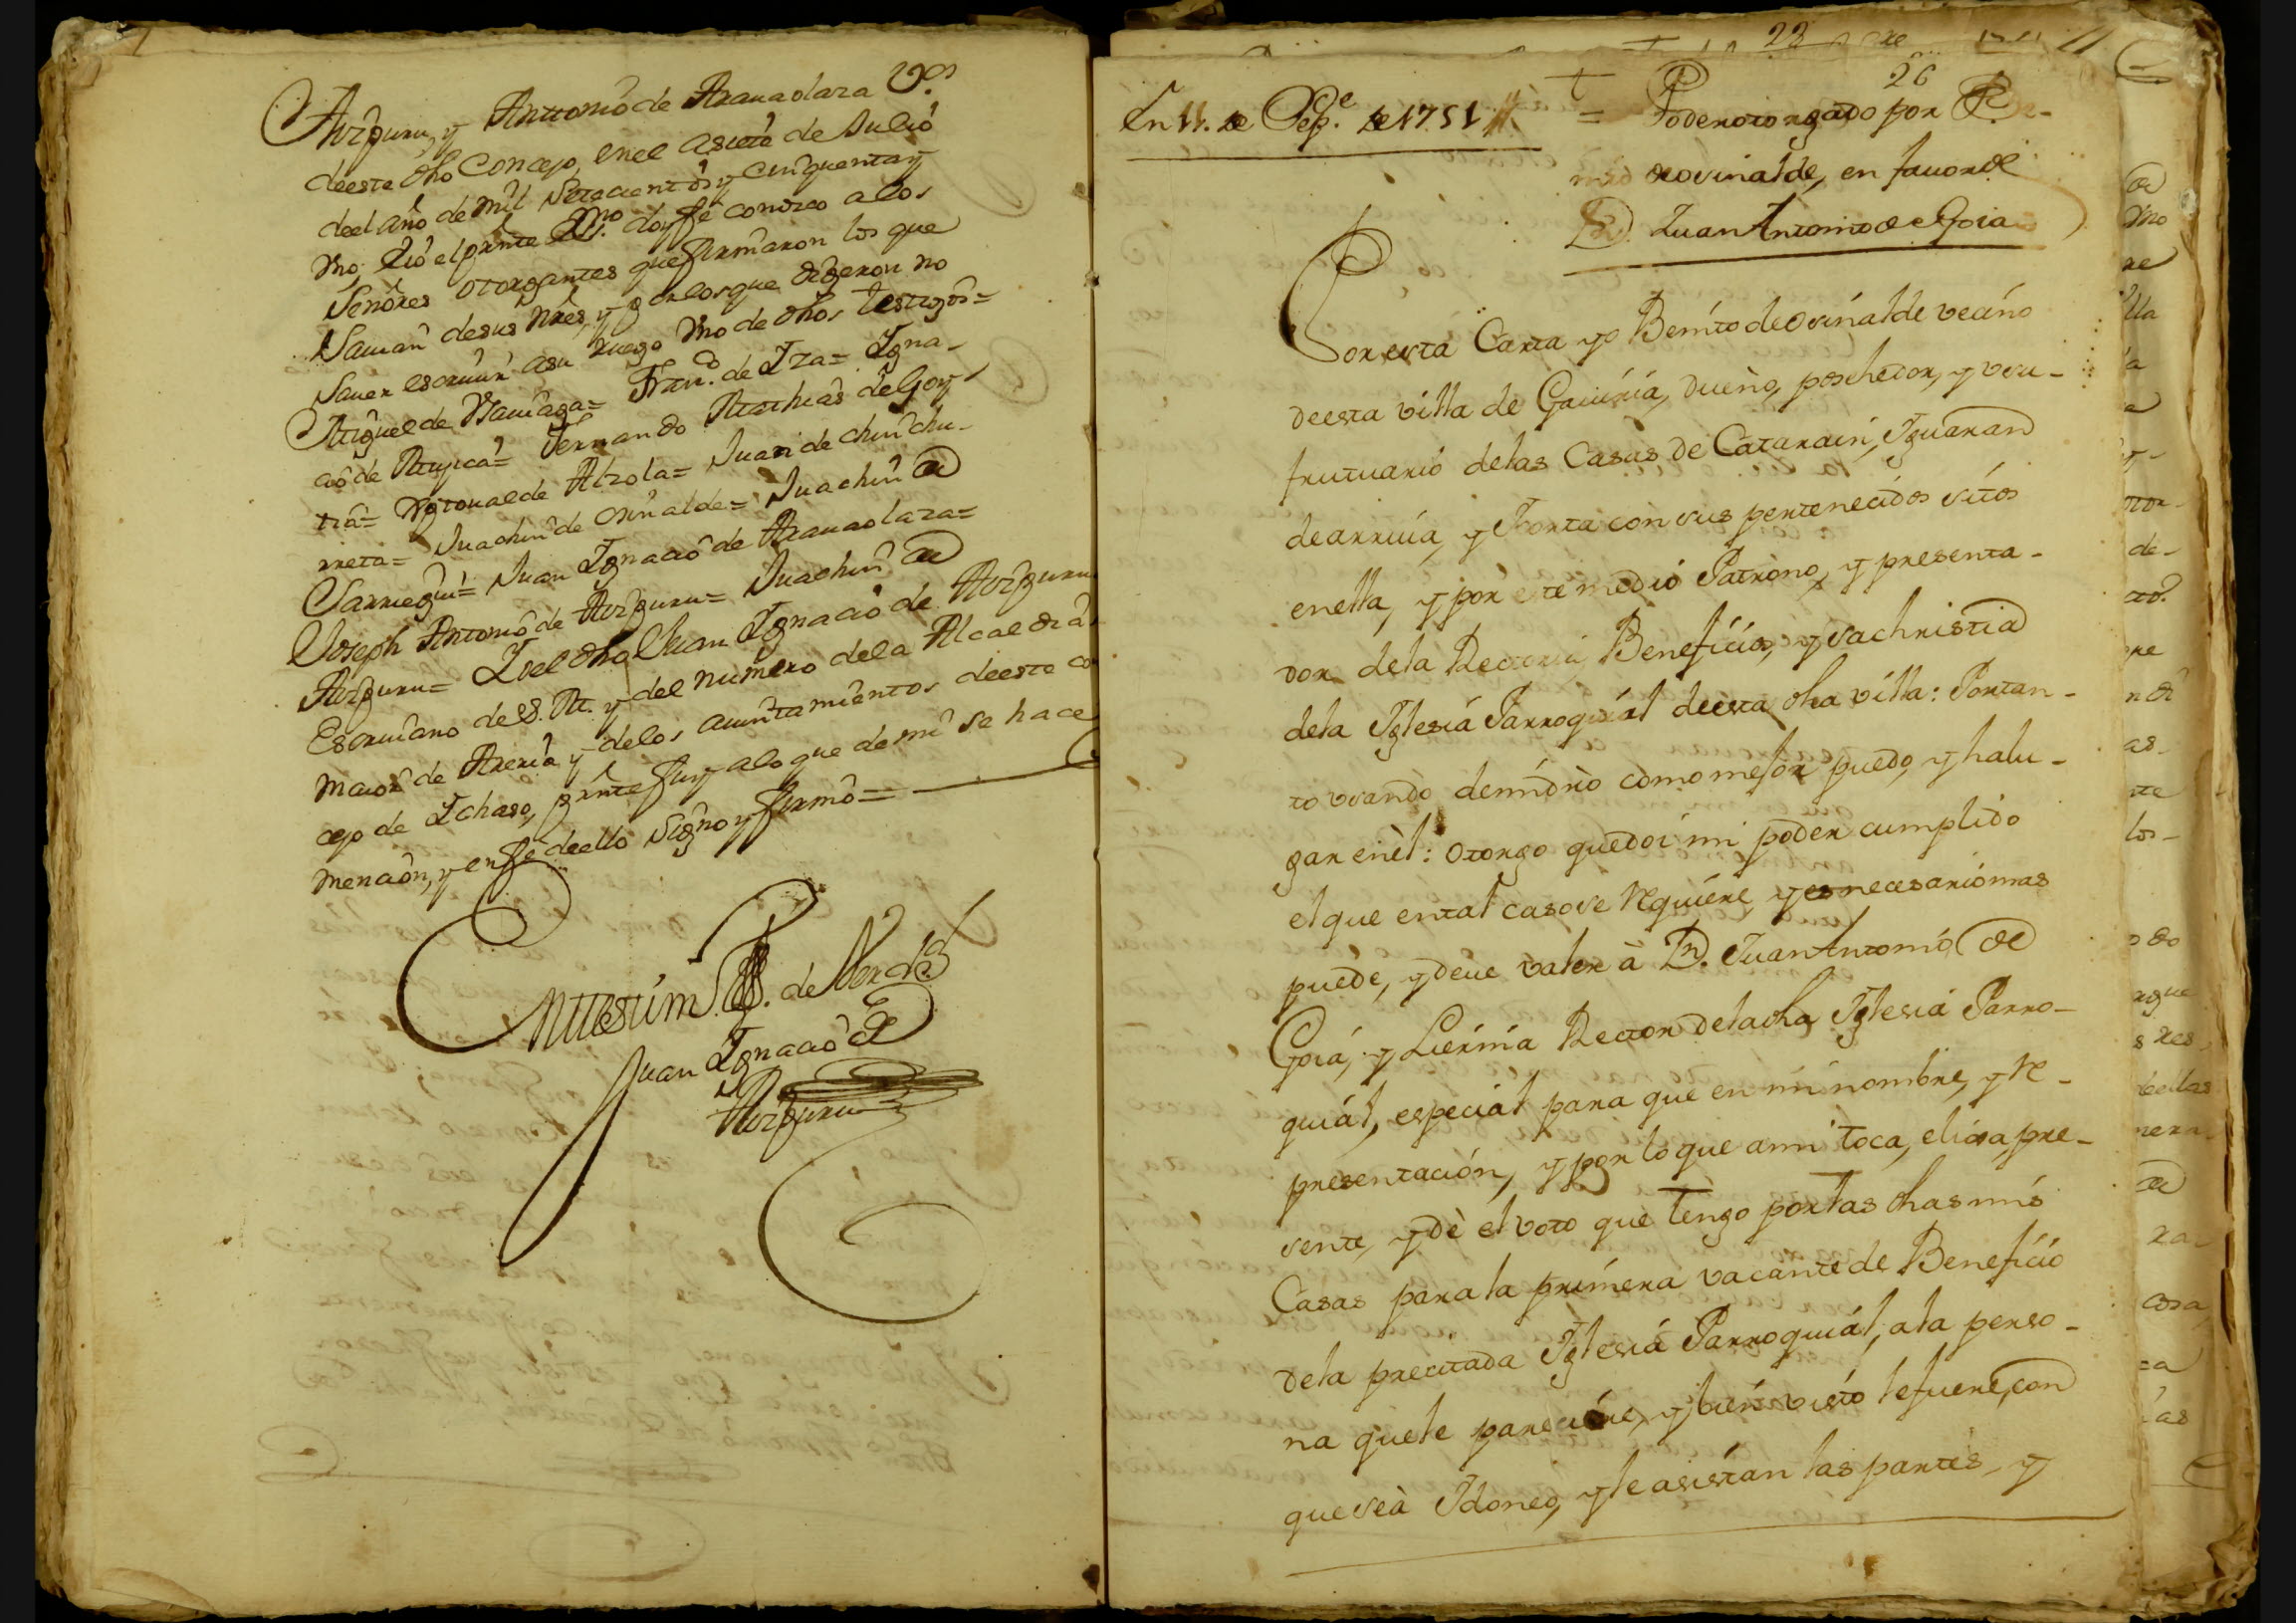 Aizpuru, y Anttonio de Aranaolaza Vs.
deeste dho Concejo, en el a siete de Julio
del año de mil Setecientos y cinquenta y
vno, è Yo el prnte essno. doy feè conozco a los
Señores otorgantes que firmaron los que
Sauian de sus nres, y por los que digeron no
Sauer escriuir a su ruego vno de dhos testigos=
Miguel de Barriaga= Franco. de Yza= Igna-
cio de Muxica= Fernando Mathias de Goy
tia= Xptoual de Alzola= Juan de chinchu-
rreta= Juachin de Orinalde= Juachin de
Sarriegui= Juan Ygnacio de Aranaolaza=
Joseph Antonio de Aizpuru= Juachin de
Aizpuru= E yo el dho Juan Ygnacio de Aizpuru
Escriuano de S. M. y del numero dela Alcaldia
maior de Areria, y delos aiuntamientos deeste con
cejo de Ichaso, prnte fuy alo que de mi se hace
mencion, y en feè deello signo y firmo=
En testim.o de Verdad
Juan Ygnacio de
Aizpuru
28
26
En 11. de Sep.e de 1751
= Poder otorgado por Be-
nito de ovinalde, en fauor de
Dn. Juan Antonio de Goia
Por esta Carta yo Benito de ovinalde vecino
deesta villa de Gauiria, dueño, poschedor, y vsu-
frutuario delas Casas de Catarain, Iguaran
de arriua, y Iborta con sus pertenecidos sitos
en ella, y por este medio Patrono, y presenta-
dor dela Rectoria, Beneficios, y sachristia
dela Iglesia Parroquial deesta dha villa: Portan-
to vsando demi drio como mejor puedo, y halu-
gar en èl: Otorgo quedoi mi poder cumplido
el que en tal caso se requiere, y es necesario mas
puede, y deue valer à Dn. Juan Antonio de
Goia, y Liernia Rector dela dha Iglesia Parro-
quial, especial para que en mi nombre, y re-
presentacion, y por lo que a mi toca, elixa, pre-
sente, y dè el voto que tengo por las dhas mis
Casas para la primera vacante de Beneficio
dela precitada Iglesia Parroquial, ala perso-
na que le pareciere, y bien visto le fuere, con
que seà Idoneo, y le asistan las partes, y